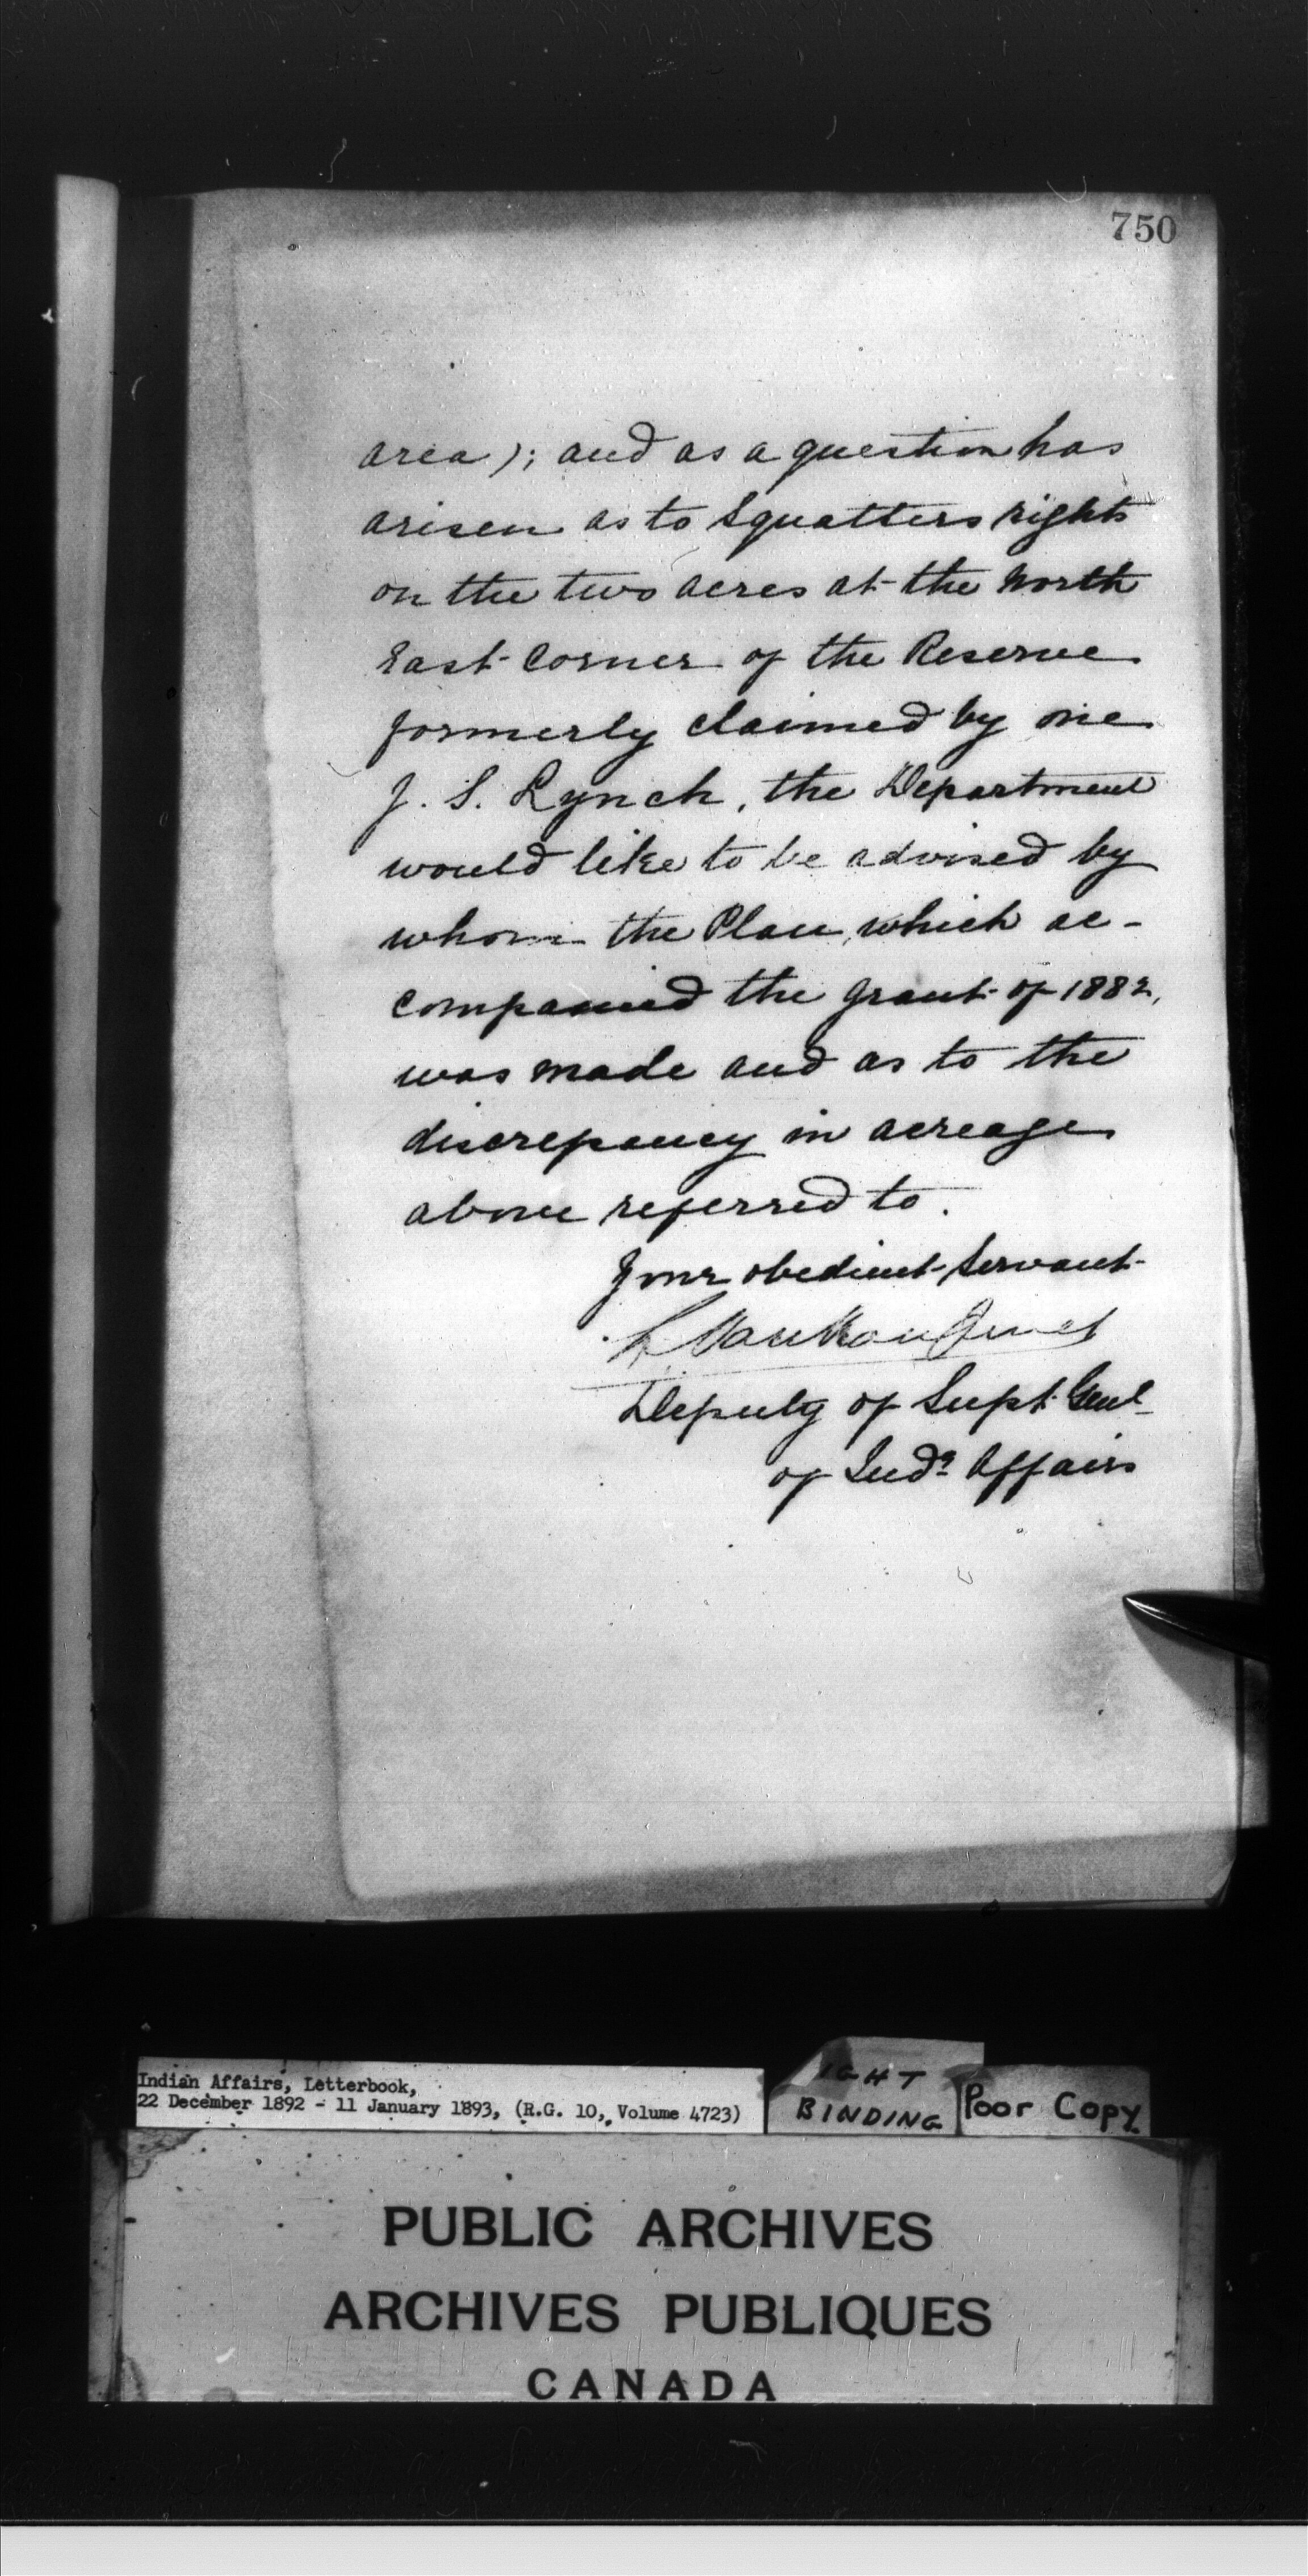 750
area); and as a question has
arisen as to Squatters rights
on the two acres at the North
East Corner of the Reserve
formerly claimed by one
J. S. Lynch, the Department
would like to be advised by
whom the Plan, which ac-
companied the grant of 1882,
was made and as to the
discrepancy in acreage
above referred to.
Your obedient Servant
L Vankoughnet
Deputy of Supt. Genl
of Indn Affairs
Indian Affairs, Letterbook,
22 December 1892 - 11 January 1893, (R.G. 10, Volume 4723)
IGHT
BINDING
Poor Copy
PUBLIC ARCHIVES
ARCHIVES PUBLIQUES
CANADA